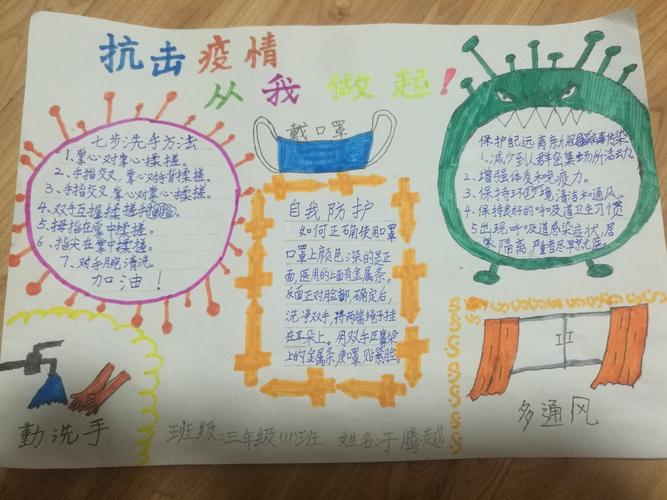 抗击疫情
从我做起!
七步洗手方法
1、掌心对掌心揉搓。
2、手指交叉,掌心对手背揉搓。
3、手指交叉,掌心对掌心揉搓。
4、双手互握揉搓手指。
5、拇指在掌中揉搓。
6、指尖在掌中揉搓。
7、对手腕清洗。
加油!
戴口罩
自我防护
如何正确使用口罩
口罩上颜色深的是正
面,医用的上面有金属条。
反面正对脸部,确定后,
洗净双手,将两端绳子挂
在耳朵上。用双手压鼻梁
上的金属条,使口罩贴紧脸。
保护自己远离新冠病毒传染
1、减少到人群密集场所活动。
2、增强体质和免疫力。
3、保持环境清洁和通风。
4、保持良好的呼吸道卫生习惯
5、出现呼吸道感染症状,居
家隔离,严重尽早就医。
勤洗手
多通风
班级:三年级(1)班 姓名:于腾越